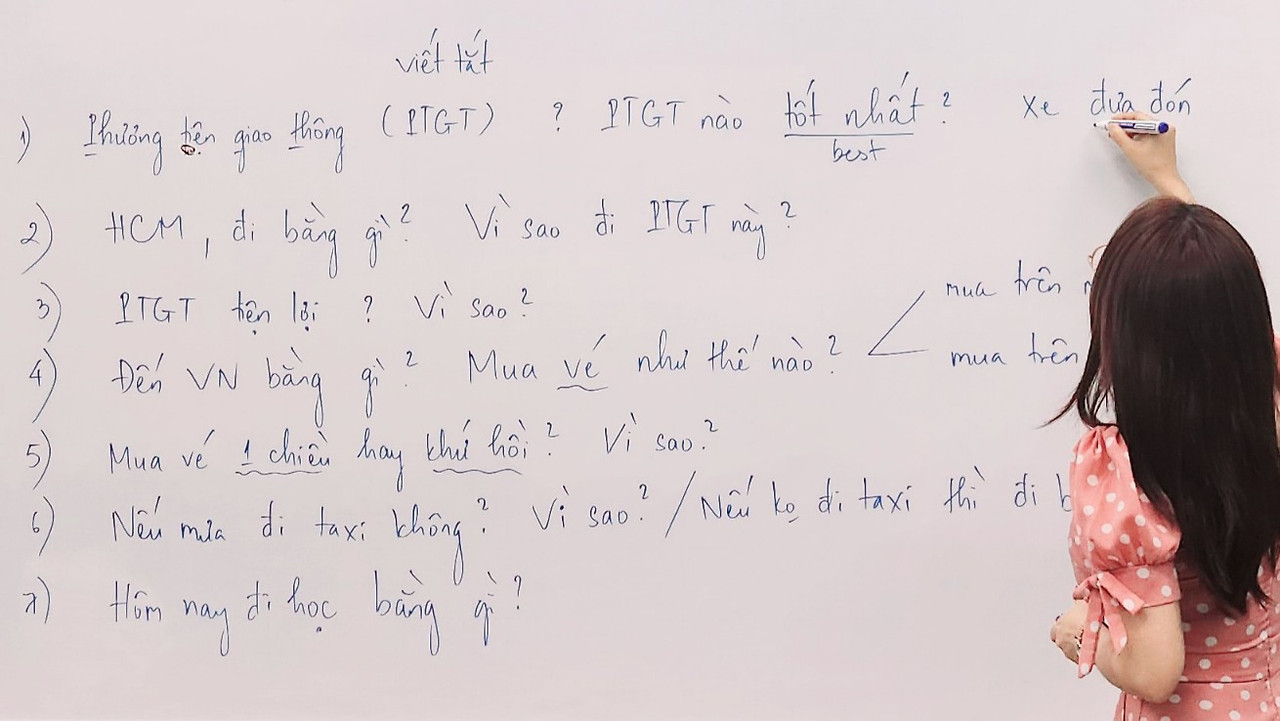 viết tắt
1) Phương tiện giao thông (PTGT) ? PTGT nào tốt nhất? xe đưa đón
best
2) HCM, đi bằng gì? Vì sao đi PTGT này?
3) PTGT tiện lợi ? Vì sao?
mua trên
4) Đến VN bằng gì? Mua vé như thế nào?
mua trên
5) Mua vé 1 chiều hay khứ hồi? Vì sao?
6) Nếu mưa đi taxi không? Vì sao? / Nếu ko đi taxi thì đi
7) Hôm nay đi học bằng gì?